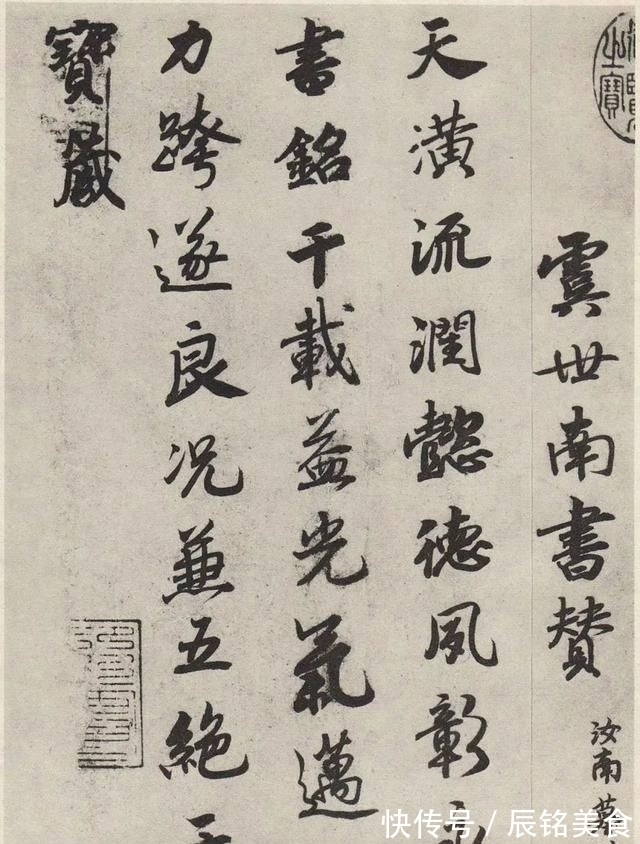 虞世南書贊
汝南
天潢流潤懿德夙彰
書銘千載益光氣邁
力跨遂良況兼五絶
寶藏
快传号/辰铭美食